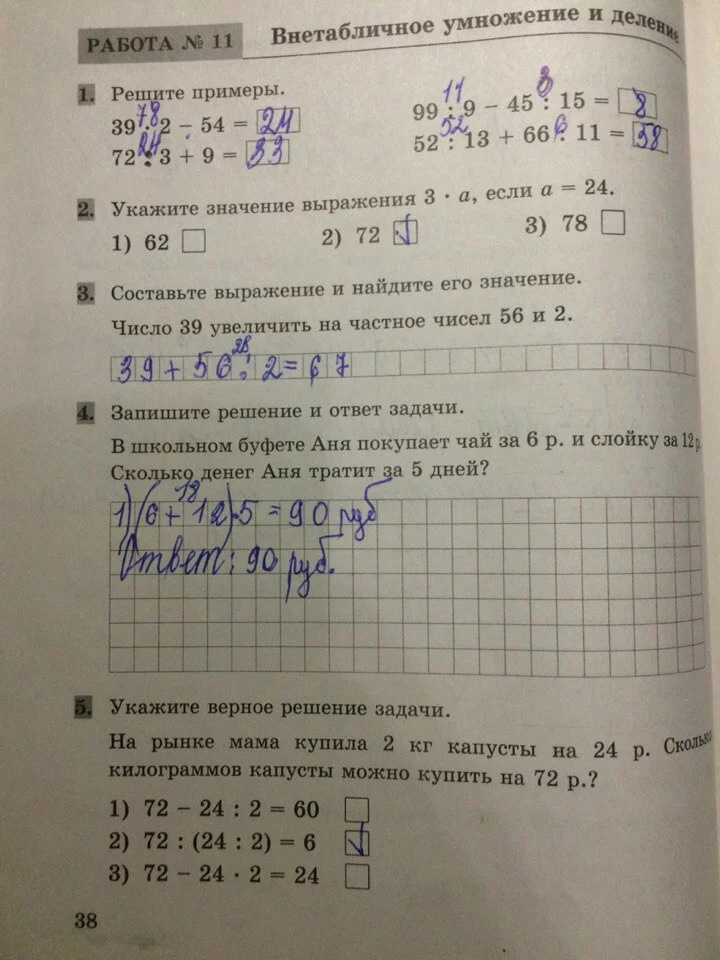 РАБОТА № 11
Внетабличное умножение и деление
1. Решите примеры.
78
39 · 2 − 54 = 24
24
72 : 3 + 9 = 33
11 3
99 : 9 − 45 : 15 = 8
52 6
52 : 13 + 66 : 11 = 58
2. Укажите значение выражения 3 · а, если а = 24.
1) 62 2) 72 √ 3) 78
3. Составьте выражение и найдите его значение.
Число 39 увеличить на частное чисел 56 и 2.
28
39 + 56 : 2 = 67
4. Запишите решение и ответ задачи.
В школьном буфете Аня покупает чай за 6 р. и слойку за 12 р.
Сколько денег Аня тратит за 5 дней?
18
1) (6 + 12) · 5 = 90 руб
Ответ: 90 руб.
5. Укажите верное решение задачи.
На рынке мама купила 2 кг капусты на 24 р. Сколько
килограммов капусты можно купить на 72 р.?
1) 72 − 24 : 2 = 60
2) 72 : (24 : 2) = 6 √
3) 72 − 24 · 2 = 24
38